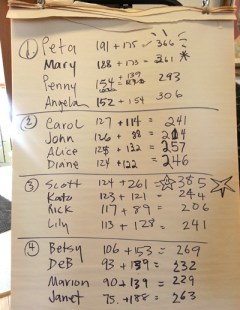 ① Peta 191 + 175 ✓ 366
Mary 188 + 173 = 361 *
Penny 154 + 139 293
Angela 152 + 154 306
② Carol 127 + 114 = 241
John 126 + 88 = 214
Alice 125 + 132 = 257
Diane 124 + 122 = 246
③ Scott 124 + 261 = ☆ 385 ☆
Kate 123 + 121 = 244
Rick 117 + 89 = 206
Lily 113 + 128 = 241
④ Betsy 106 + 153 = 269
DeB 93 + 139 = 232
Marion 90 + 139 = 229
Janet 75 + 188 = 263